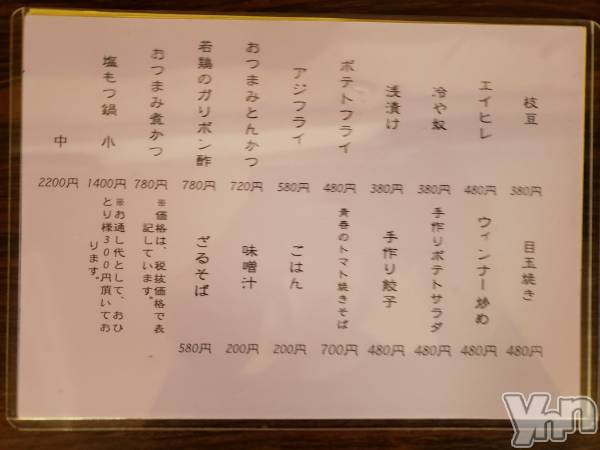 枝豆 380円
エイヒレ 480円
冷や奴 380円
浅漬け 380円
ポテトフライ 480円
アジフライ 580円
おつまみとんかつ 720円
若鶏のガリポン酢 780円
おつまみ煮かつ 780円
塩もつ鍋 小 1400円
中 2200円
目玉焼き 480円
ウィンナー炒め 480円
手作りポテトサラダ 480円
手作り餃子 480円
青春のトマト焼きそば 700円
ごはん 200円
味噌汁 200円
ざるそば 580円
※価格は、税抜価格で表
記しています。
※お通し代として、おひ
とり様300円頂いてお
ります。
Ynn